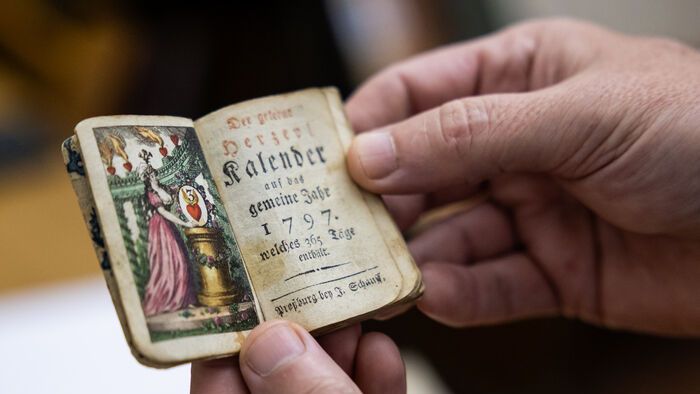 Der
Herzerl
Kalender
auf das
gemeine Jahr
1797.
welches 365 Täge
enthält.
Preßburg bey J. Schauf.